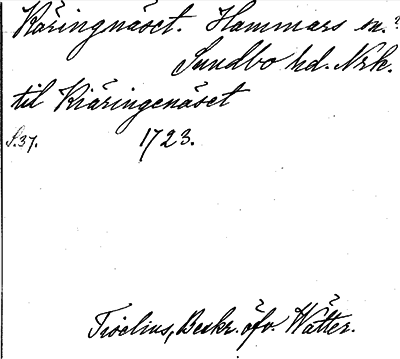 Käringnäset. Hammars sn.?
Sundbo hd. Nrk.
til Kiäringenäset
S.37. 1723.
Tiselius, Beskr. öfv. Wätter.